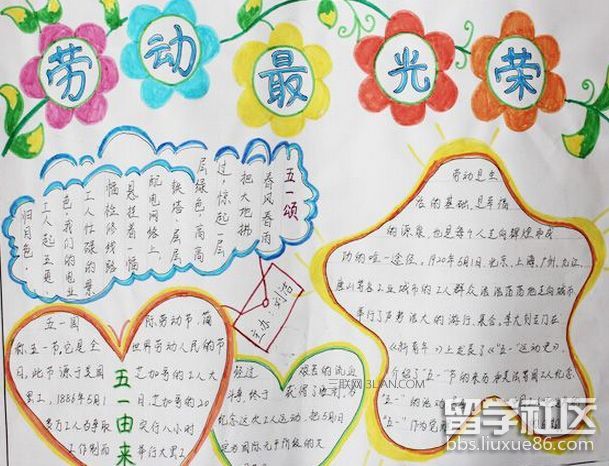 劳动最光荣
五一颂
春风春雨
把大地拂
过,惊起一层
层绿色,高高
铁塔,层层
配电网络上,
悬挂着一幅
幅检修线路
工人忙碌的景
色,我们的电业
工人起五更
归月色,
劳动是生
存的基础,是幸福
的源泉,也是每个人走向辉煌和成
功的唯一途径。1920年5月1日,北京、上海、广州、九江、
唐山等各工业城市的工人群众浩浩荡荡地走向城市
举行了声势浩大的游行、集会。李大钊
《新青年》上发表了《"五一"运动史》,
介绍了"五一"节的来历和美法等国工人纪念
"五一"的活动
"五一"作为
主办:
五一国 际劳动节,简
称五一节,它是全 世界劳动人民的节
日。此节源于美国 芝加哥的工人大
罢工,1886年5月1 芝加哥的20
多万工人为争取 实行八小时
工作制而 举行大罢工
五一由来
经过 艰苦的流血
斗争,终于 获得了胜利,为
纪念这次工人运动 把5月1日
定为国际无产阶级的
三联网 3LIAN.COM
留学社区
bbs.liuxue86.com